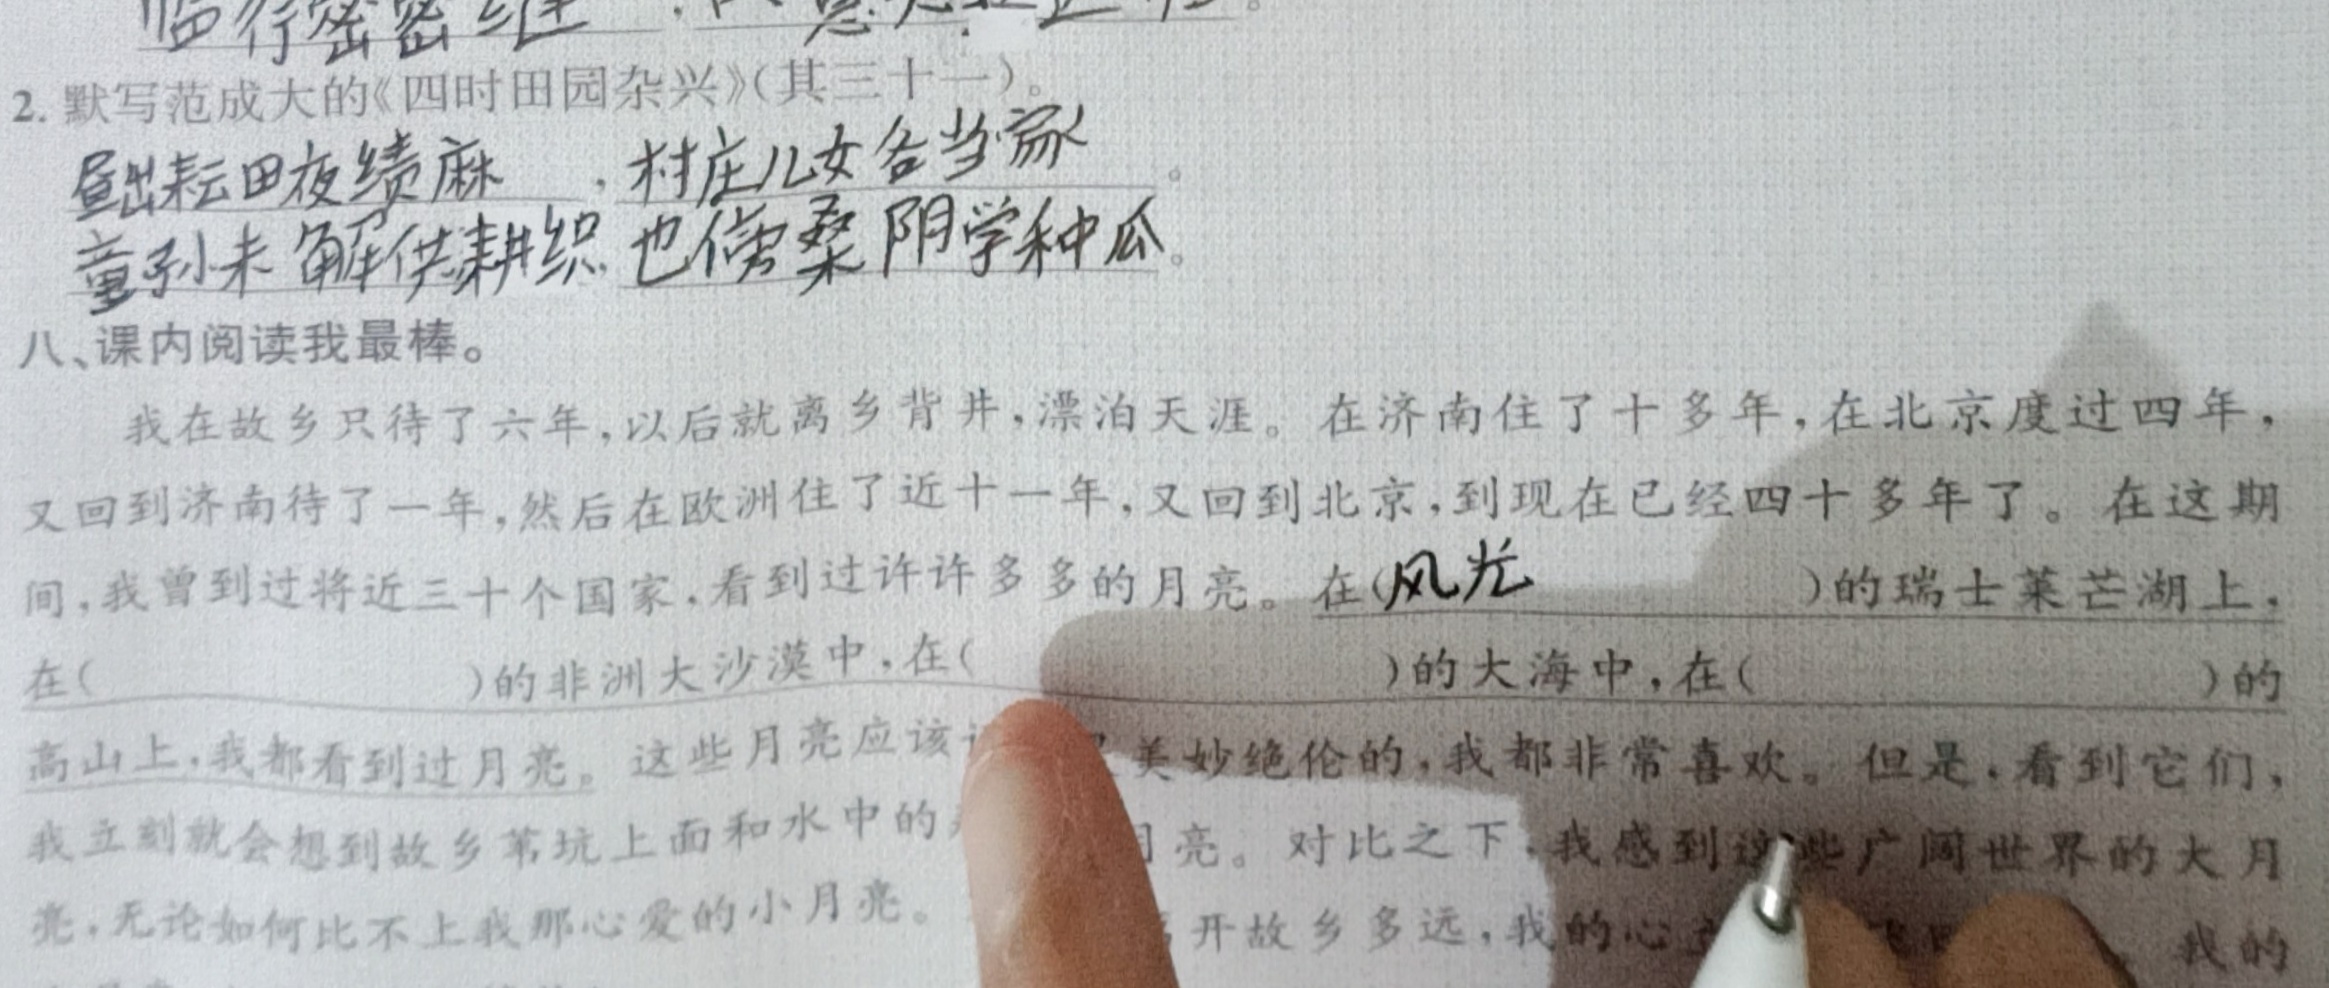 临行密密缝
2. 默写范成大的《四时田园杂兴》(其三十一)。
昼出耘田夜绩麻，村庄儿女各当家。
童孙未解供耕织，也傍桑阴学种瓜。
八、课内阅读我最棒。
我在故乡只待了六年，以后就离乡背井，漂泊天涯。在济南住了十多年，在北京度过四年，
又回到济南待了一年，然后在欧洲住了近十一年，又回到北京，到现在已经四十多年了。在这期
间，我曾到过将近三十个国家，看到过许许多多的月亮。在(风光 )的瑞士莱芒湖上，
在( )的非洲大沙漠中，在( )的大海中，在( )的
高山上，我都看到过月亮。这些月亮应该 美妙绝伦的，我都非常喜欢。但是，看到它们，
我立刻就会想到故乡苇坑上面和水中的 月亮。对比之下，我感到这些广阔世界的大月
亮，无论如何比不上我那心爱的小月亮。 开故乡多远，我的心 我的